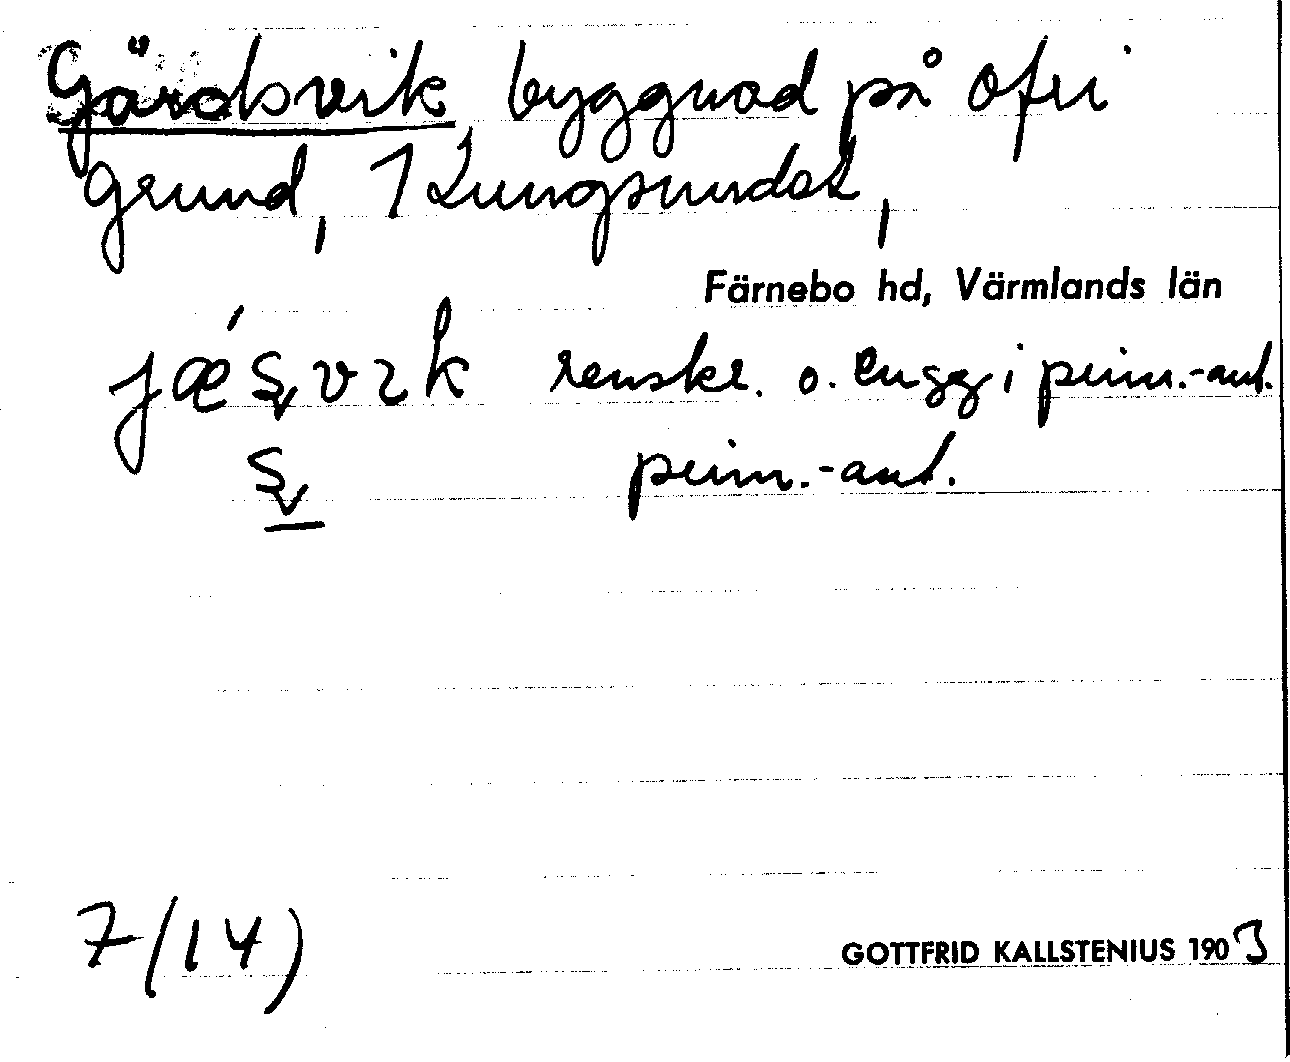 Gärdsvik, byggnad på ofri
grund, 1 Kungsundet,
Färnebo hd, Värmlands län
renskr. o. lugg i prim.-ant.
prim.-ant.
7/(14)
GOTTFRID KALLSTENIUS 1903